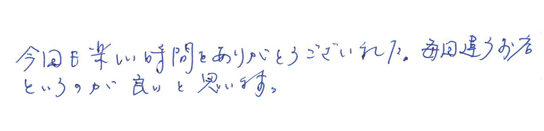 今回も楽しい時間をありがとうございました。毎回違うお店
というのが良いと思います。